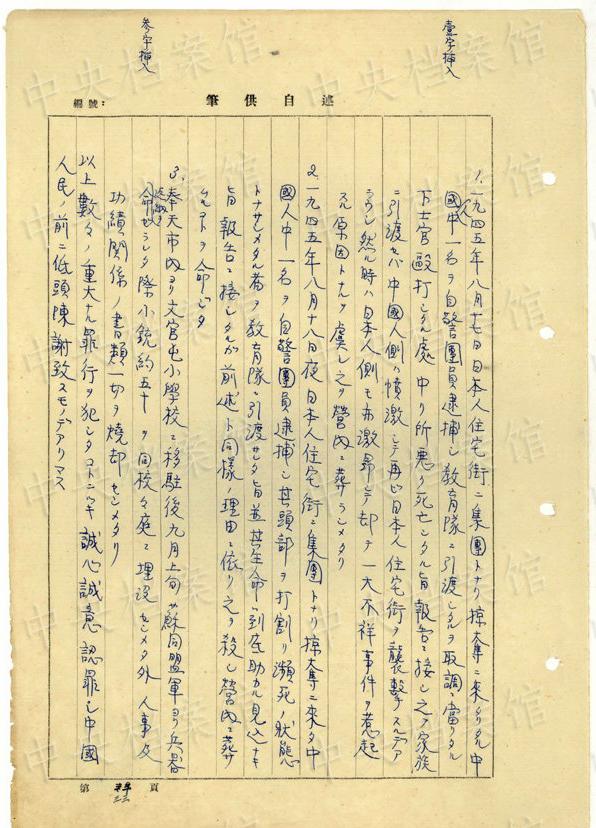 壹字挿入
参字挿入
編號：
筆供自述
1. 一九四五年八月十七日日本人住宅街ニ集團トナリ掠奪ニ来タリタル中
國人中一名ヲ自警團員逮捕シ教育隊ニ引渡シタルヲ取調ニ當リタル
下士官毆打シタル處中リ所悪ク死亡シタル旨報告ニ接シ之ヲ家族
ニ引渡セバ中國人側ハ憤激シテ再ビ日本人住宅街ヲ襲撃スルデア
ラウシ然ル時ハ日本人側モ亦激昂シテ却テ一大不祥事件ヲ惹起
スル原因トナルヲ虞レ之ヲ營内ニ葬ラシメタリ
2. 一九四五年八月十八日夜日本人住宅街ニ集團トナリ掠奪ニ来タ中
國人中一名ヲ自警團員逮捕シ其頭部ヲ打割リ瀕死ノ狀態
トナサシメタル者ヲ教育隊ニ引渡サレタ旨並其生命ハ到底助カル見込ナキ
旨報告ニ接シタルガ前述ト同様ノ理由ニ依リ之ヲ殺シ營内ニ葬
ルコトヲ命ジタ
3. 奉天市内ヨリ文官屯小學校ニ移駐後九月上旬蘇同盟軍ヨリ兵器
命ゼラレタ際小銃約五十ヲ同校々庭ニ埋没セシメタ外人事及
功績関係ノ書類一切ヲ焼却セシメタリ
以上數々ノ重大ナル罪行ヲ犯シタコトニツキ誠心誠意認罪シ中國
人民ノ前ニ低頭陳謝致スモノデアリマス
第 頁
中央档案馆